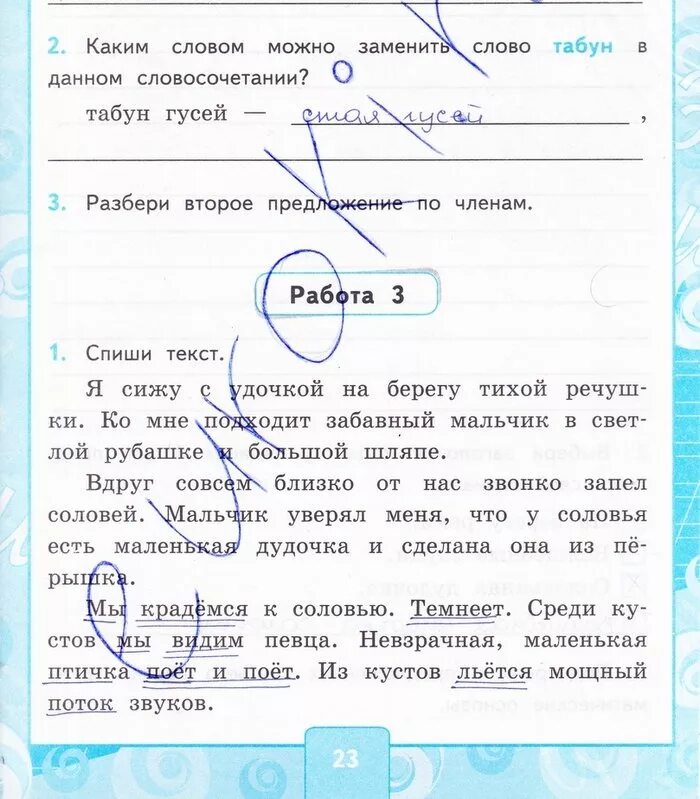 2. Каким словом можно заменить слово табун в
данном словосочетании?
табун гусей — стая гусей ,
3. Разбери второе предложение по членам.
Работа 3
1. Спиши текст.
Я сижу с удочкой на берегу тихой речуш-
ки. Ко мне подходит забавный мальчик в свет-
лой рубашке и большой шляпе.
Вдруг совсем близко от нас звонко запел
соловей. Мальчик уверял меня, что у соловья
есть маленькая дудочка и сделана она из пё-
рышка.
Мы крадёмся к соловью. Темнеет. Среди ку-
стов мы видим певца. Невзрачная, маленькая
птичка поёт и поёт. Из кустов льётся мощный
поток звуков.
23